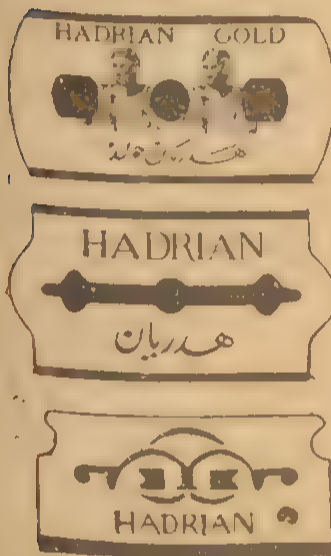 HADRIAN GOLD
هدریان گولڈ
HADRIAN
هدریان
HADRIAN